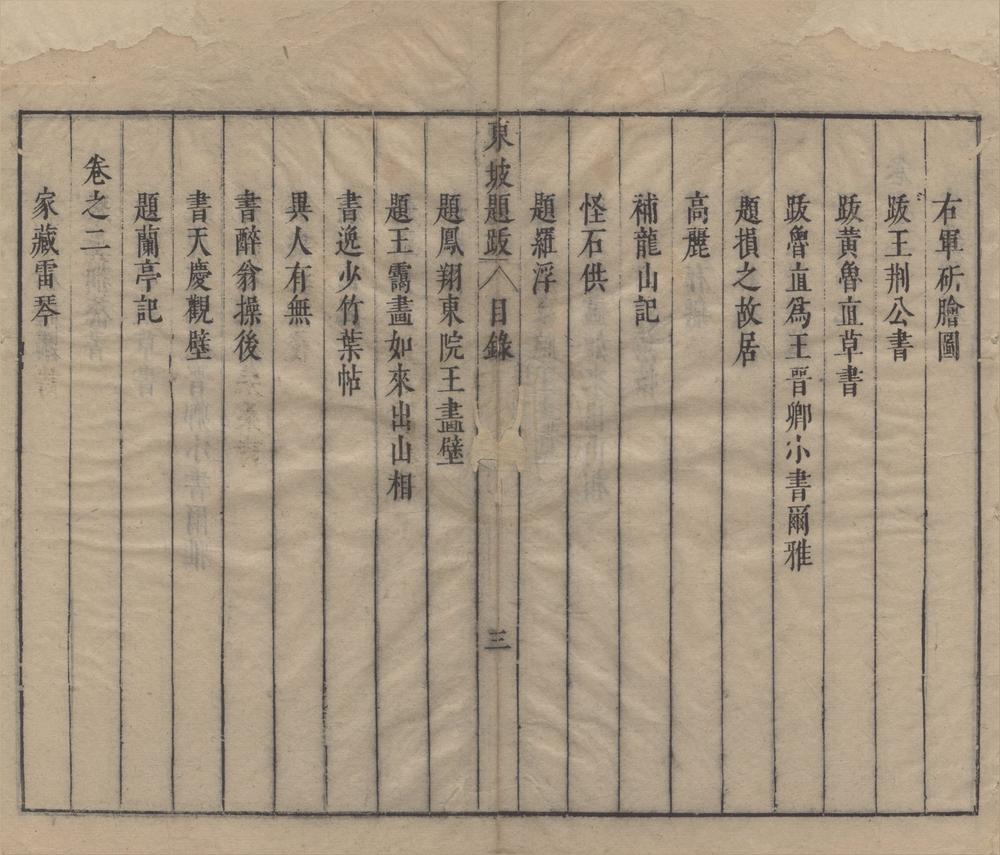 右軍斫膾圖
跋王荆公書
跋黃魯直草書
跋魯直爲王晉卿小書爾雅
題損之故居
高麗
補龍山記
怪石供
題羅浮
東坡題跋 目錄 三
題鳳翔東院王畫壁
題王靄畫如來出山相
書逸少竹葉帖
異人有無
書醉翁操後
書天慶觀壁
題蘭亭記
卷之二
家藏雷琴